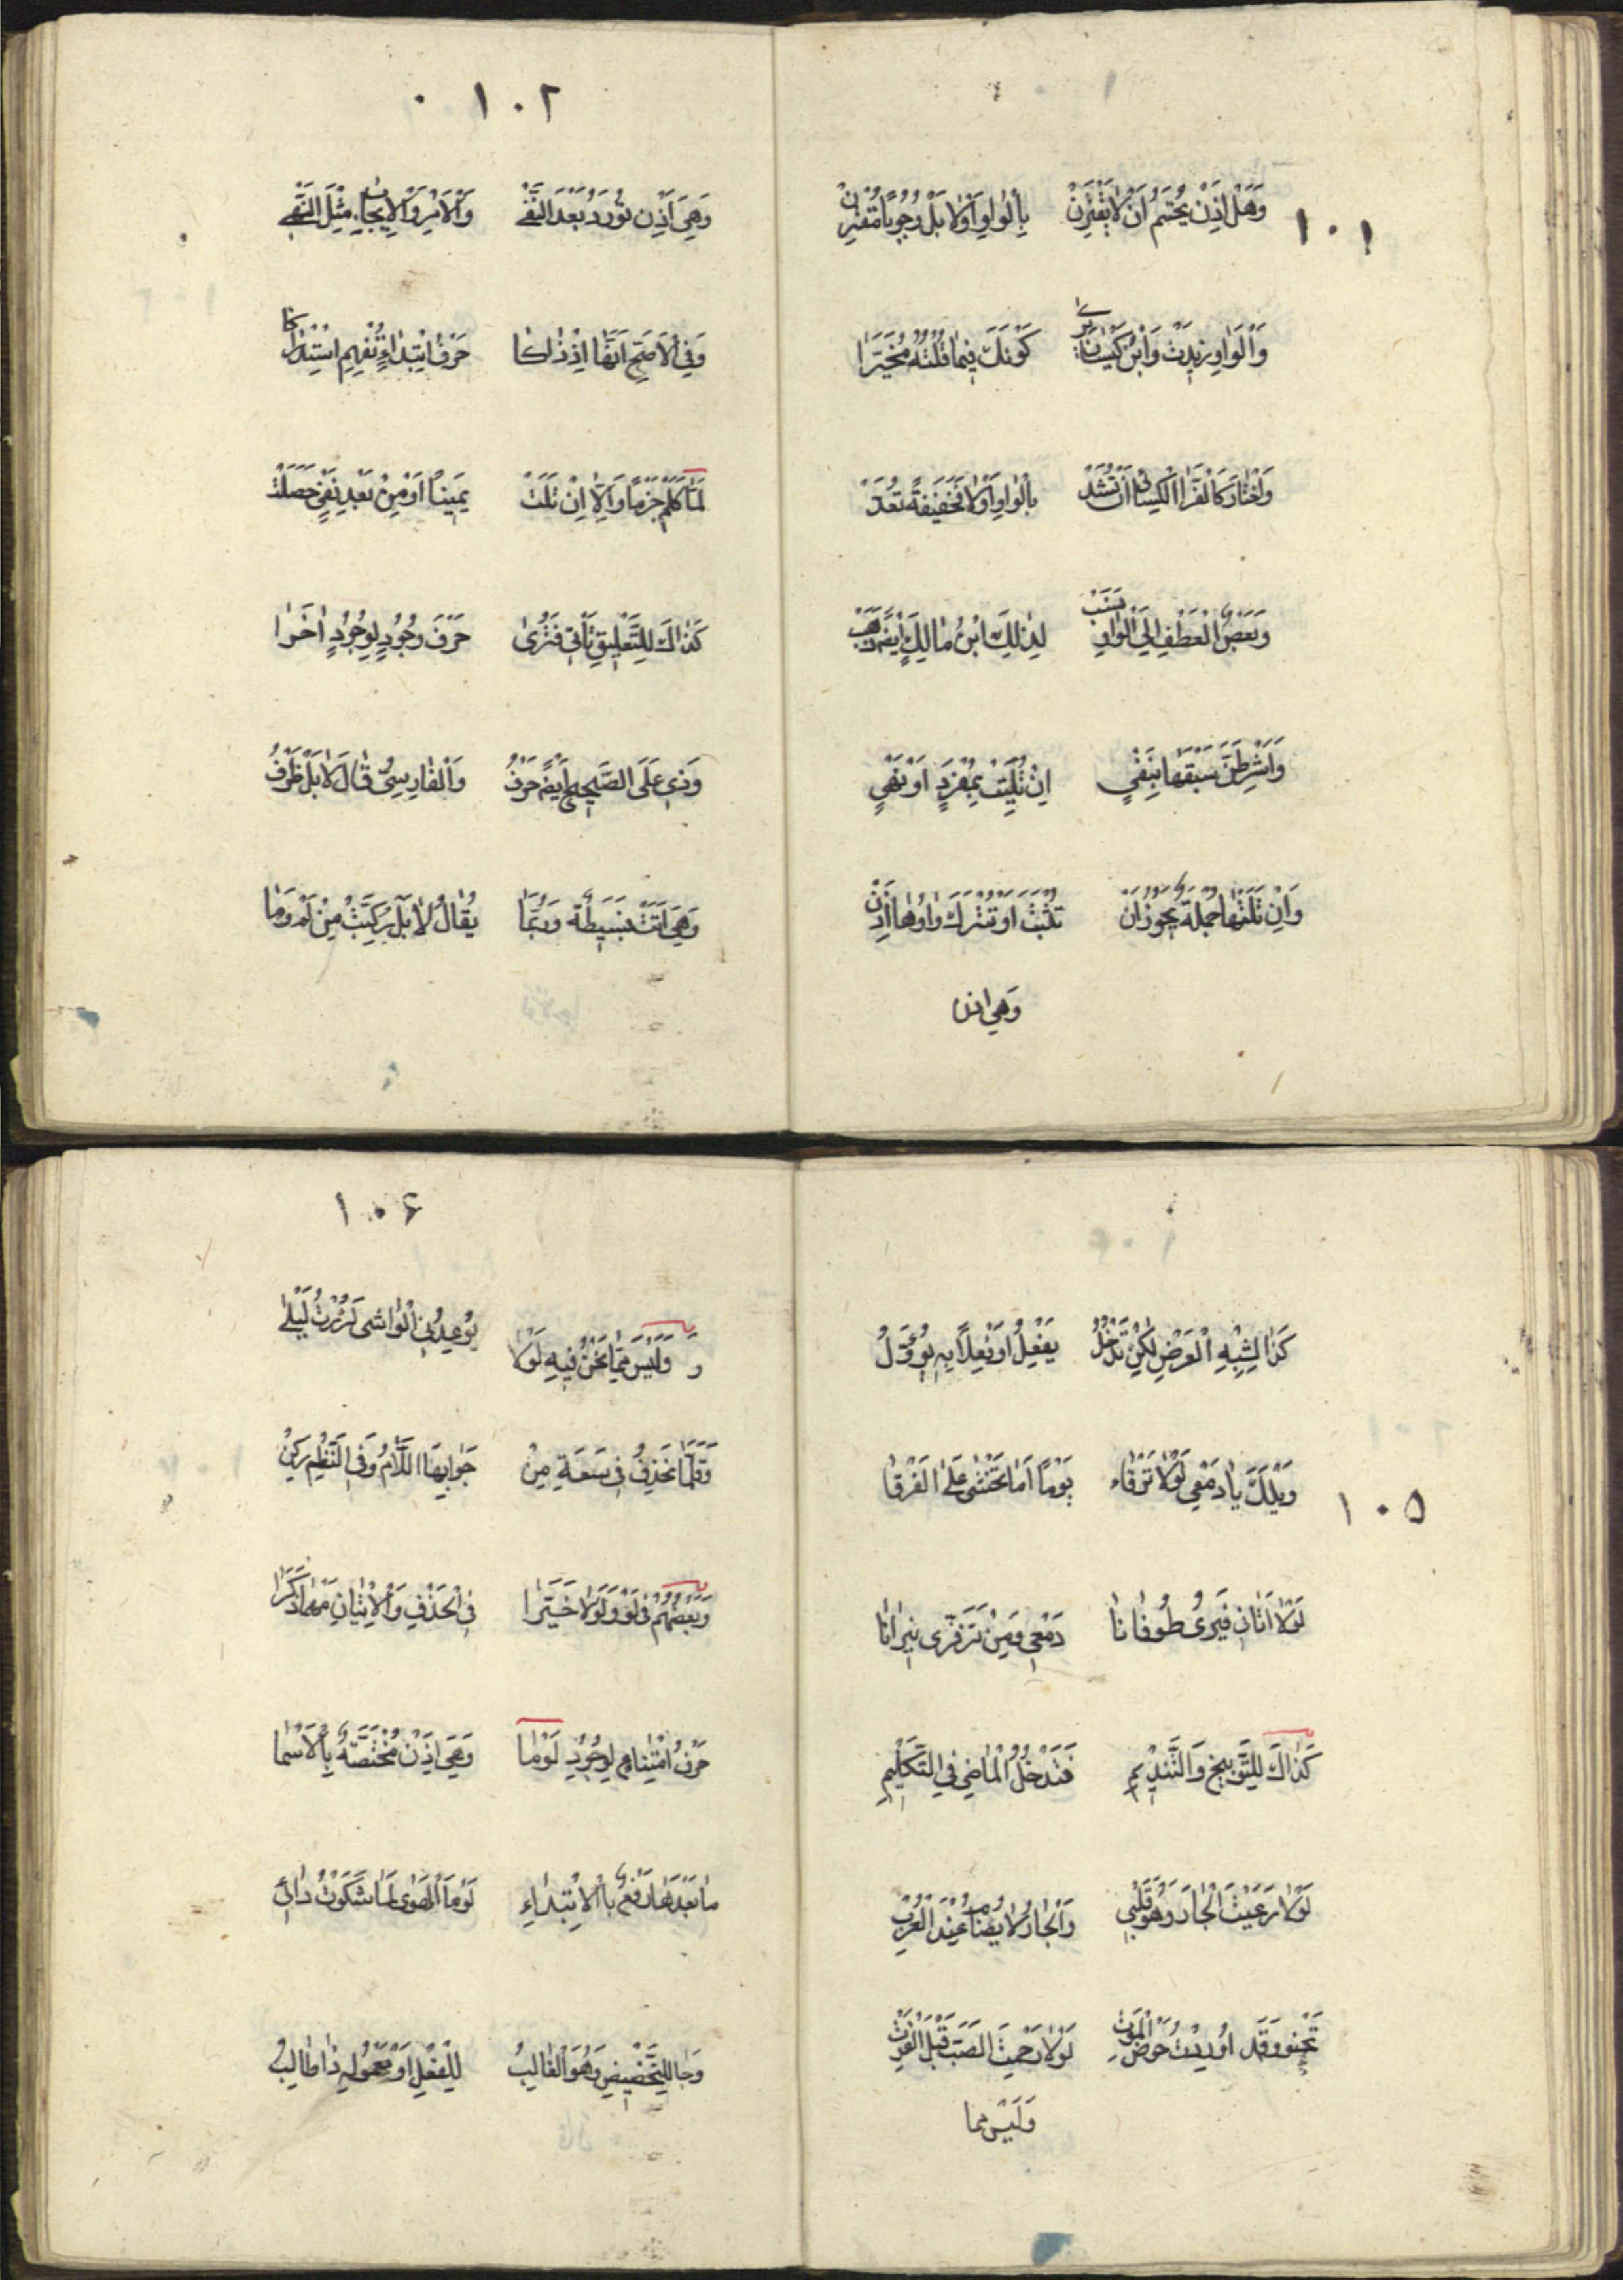 ١٠١
وَهَلْ اِذَنْ يُحْتَمُ اَنْ لَا يَقْتَرِنْ بِالْوَاوِ اَوْ لَا بَلْ وُجُوبًا مُقْتَرِنْ
وَالْوَاوِ زِيدَتْ وَابْنُ كَيْسَانَ يَرٰى كَوْنَكَ فِيمَا قُلْتُهُ مُخَيَّرَا
وَاخْتَارَ كَالْفَرَّا الْكِسَائِى اَنْ تُشَدْ بِالْوَاوِ اَوْلَا فَخَفِيفَةً تُعَدْ
وَبَعْضٌ الْعَطْفِ اِلَى الْوَاوِ نَسَبْ لِذٰلِكَ ابْنُ مَالِكٍ اَيْضًا ذَهَبْ
وَاشْرِطَنَّ سَبْقَهَا بِنَفْيٍ اِنْ تُلِيَتْ بِمُفْرَدٍ اَوْ نَهْيٍ
وَاِنْ تَلَتْهَا جُمْلَةٌ يَجُوزُ اَنْ تُثْبَتَ اَوْ تُتْرَكَ وَاوُهَا اِذَنْ
وَهِيَ اذن
١٠٢
وَهِيَ اِذَنْ تُورَدُ بَعْدَ النَّفْىِ وَالْاَمْرِ وَالْاِيجَابِ مِثْلَ النَّهْىِ
وَفِى الْاَصَحِّ اَنَّهَا اِذْ ذَاكَا حَرْفُ ابْتِدَاءٍ تُفْهِمُ اسْتِدْرَاكَا
لَمَّا كَلَمْ جَزْمًا وَاِلَّا اِنْ تَلَتْ يَمِينًا اَوْ مِنْ بَعْدِ نَفْىٍ حَصَلَتْ
كَذَاكَ لِلتَّعْلِيقِ تَأْتِى فَتُرٰى حَرْفَ وُجُودٍ لِوُجُودٍ اٰخَرَا
وَذِى عَلَى الصَّحِيحِ اَيْضًا حَرْفُ وَالْفَارِسِىُّ قَالَ لَا بَلْ ظَرْفُ
وَهِيَ اَتَتْ بَسِيطَةً وَرُبَّمَا يُقَالُ لَا بَلْ رُكِّبَتْ مِنْ لَمْ وَمَا
كَذَا لِشِبْهِ الْعَرْضِ لٰكِنْ تَدْخُلُ يَفْعِلُ اَوْ فِعْلًا بِهِ يُؤَوَّلُ
١٠٥
وَيْلَكَ يَا دَمْعِى لَوْلَا تَرْقَاء يَوْمًا اَمَا تَخْشٰى عَلَىَّ الْغَرْقَا
لَوْلَا اَتَانِى فَيَرٰى طُوفَانَا دَمْعِى وَمِنْ تَزَفُّرِى نِيرَانَا
كَذَاكَ لِلتَّوْبِيخِ وَالتَّنْدِيمِ فَتَدْخُلُ الْمَاضِىَ فِى التَّكْلِيمِ
لَوْلَا رَعَيْتَ الْجَارَ وَهْوَ قَلْبِى وَالْجَارُ لَا يُضَامُ عِنْدَ الْعُرْبِ
تَحْنُو وَقَدْ اُورِدْتُ حَوْضَ الْمَوْتِ لَوْلَا رَحِمْتَ الصَّبَّ قَبْلَ الْفَوْتِ
وَلَيْسَ مما
١٠٦
وَ وَلَيْسَ مِمَّا نَحْنُ فِيهِ لَوْلَا يُوعِدُنِى الْوَاشِى لَزُرْتُ لَيْلٰى
وَقَلَّمَا تَحْذِفُ فِى سَعَةٍ مِنْ جَوَابِهَا اللَّامُ وَفِى النَّظْمِ زُكِنْ
وَبَعْضُهُمْ فِى لَوْ وَلَوْلَا خَيَّرَا فِى الْحَذْفِ وَالْاِتْيَانِ مَهْمَا ذَكَرَا
حَرْفُ امْتِنَاعٍ لِوُجُودٍ لَوْمَا وَهِيَ اِذَنْ مُخْتَصَّةٌ بِالْاَسْمَا
مَا بَعْدَهَا رَفْعٌ بِالْاِبْتِدَاءِ لَوْمَا الْهَوٰى لَمَا شَكَوْتُ دَائِى
وَجَا لِلتَّحْضِيضِ وَهُوَ الْغَالِبُ لِلْفِعْلِ اَوْ مَعْمُولِهِ ذَا طَالِبُ